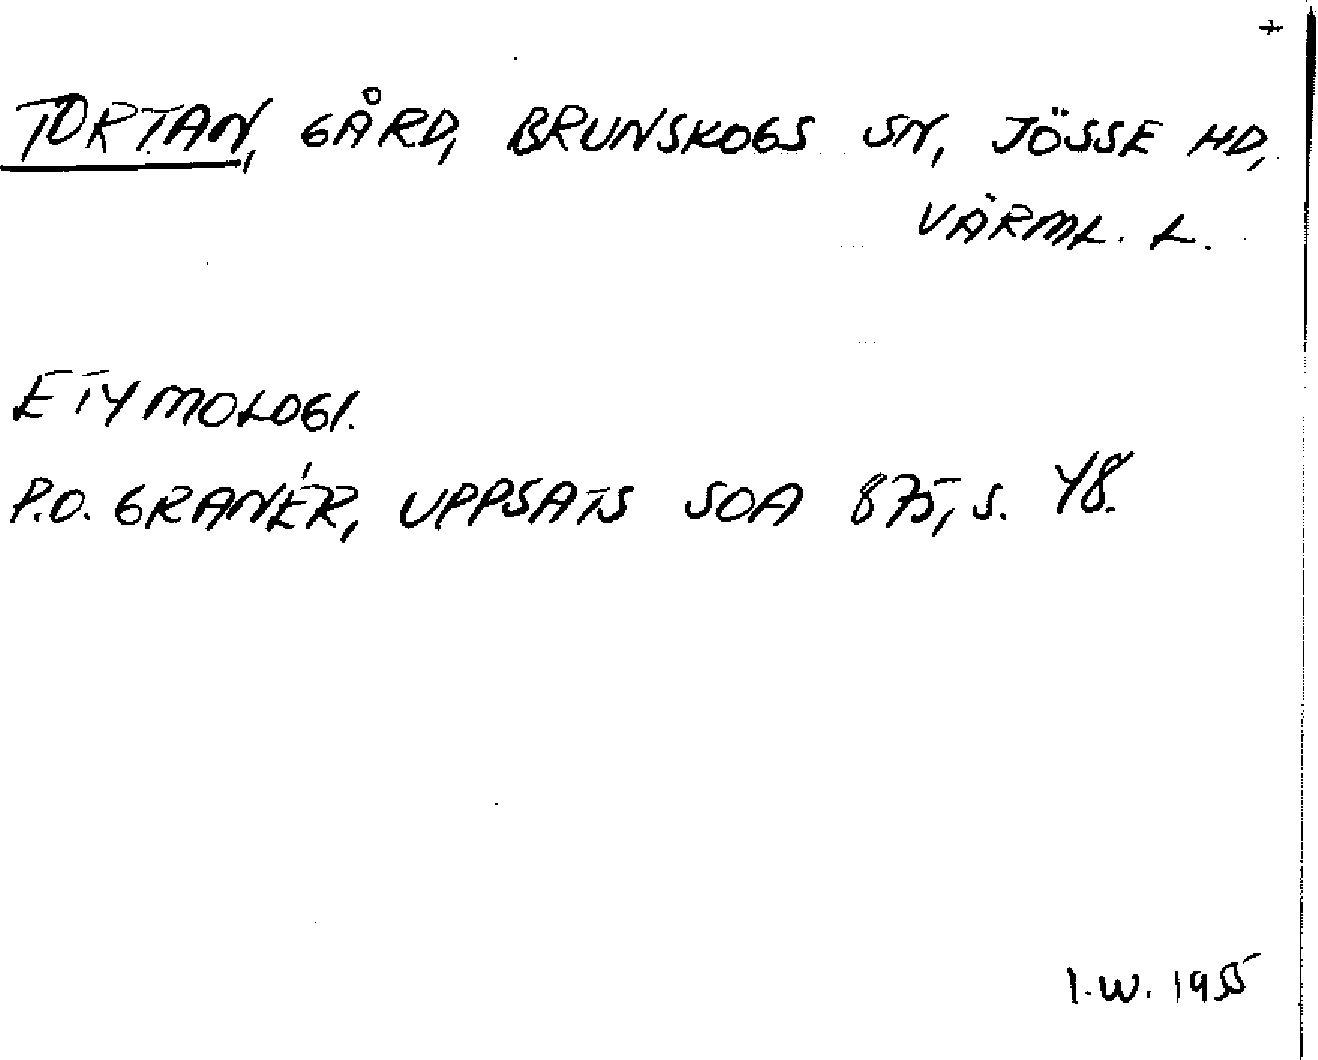 +
TORTAN, GÅRD, BRUNSKOGS SN, JÖSSE HD,
VÄRML. L.
ETYMOLOGI.
P.O. GRANÉR, UPPSATS SOA 875, S. 48.
I.W. 1955